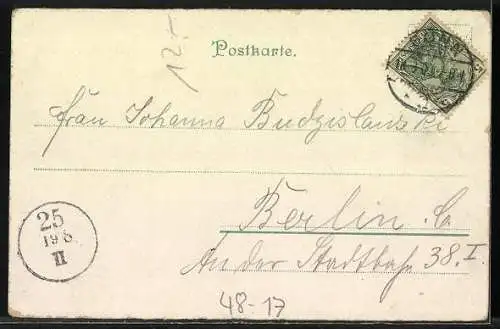 12.-
Postkarte.
Frau Johanna Budzislawski
Berlin C
An der Stadtbahn 38 I.
25
19 8
II
48-17